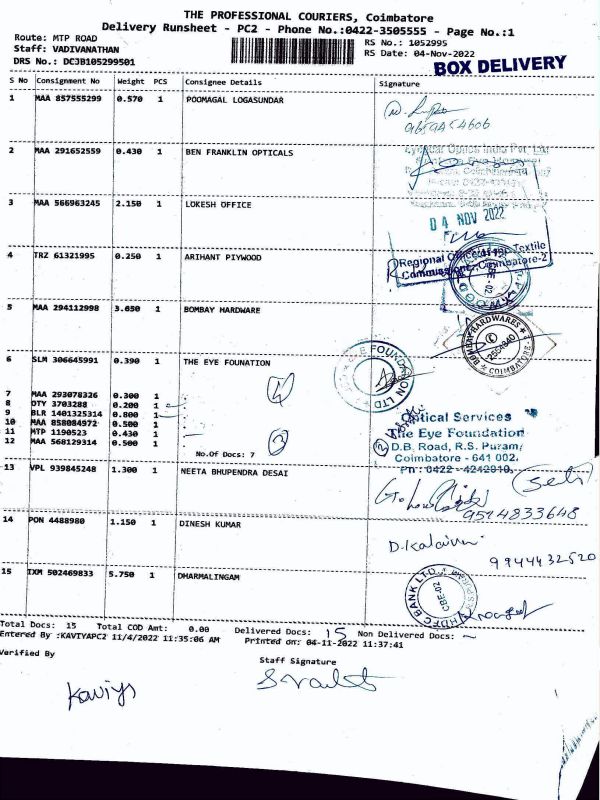 THE PROFESSIONAL COURIERS, Coimbatore
Delivery Runsheet - PC2 - Phone No.:0422-3505555 - Page No.:1
Route: MTP ROAD
RS No.: 1052995
Staff: VADIVANATHAN
RS Date: 04-Nov-2022
DRS No.: DCJB105299501
BOX DELIVERY
S No Consignment No Weight PCS Consignee Details Signature
1 MAA 857555299 0.570 1 POOMAGAL LOGASUNDAR
2 MAA 291652559 0.430 1 BEN FRANKLIN OPTICALS
3 MAA 566963245 2.150 1 LOKESH OFFICE
04 NOV 2022
4 TRZ 61321995 0.250 1 ARIHANT PIYWOOD
Regional Office of the Textile
Commissioner, Coimbatore-2
5 MAA 294112998 3.650 1 BOMBAY HARDWARE
BOMBAY HARDWARES
COIMBATORE
6 SLM 306645991 0.390 1 THE EYE FOUNATION
7 MAA 293078326 0.300 1
8 OTY 3703288 0.200 1
9 BLR 1401325314 0.800 1
10 MAA 858084972 0.500 1
11 MTP 1190523 0.430 1
12 MAA 568129314 0.500 1
No.Of Docs: 7
Optical Services
The Eye Foundation
D.B. Road, R.S. Puram,
Coimbatore - 641 002.
Ph : 0422 - 4242010,
13 VPL 939845248 1.300 1 NEETA BHUPENDRA DESAI
9514833648
14 PON 4488980 1.150 1 DINESH KUMAR
9944432520
15 IXM 502469833 5.750 1 DHARMALINGAM
HDFC BANK LTD
CBE-02
Total Docs: 15 Total COD Amt: 0.00 Delivered Docs: 15 Non Delivered Docs:
Entered By :KAVIYAPC2 11/4/2022 11:35:06 AM Printed on: 04-11-2022 11:37:41
Verified By
Staff Signature
Kaviya